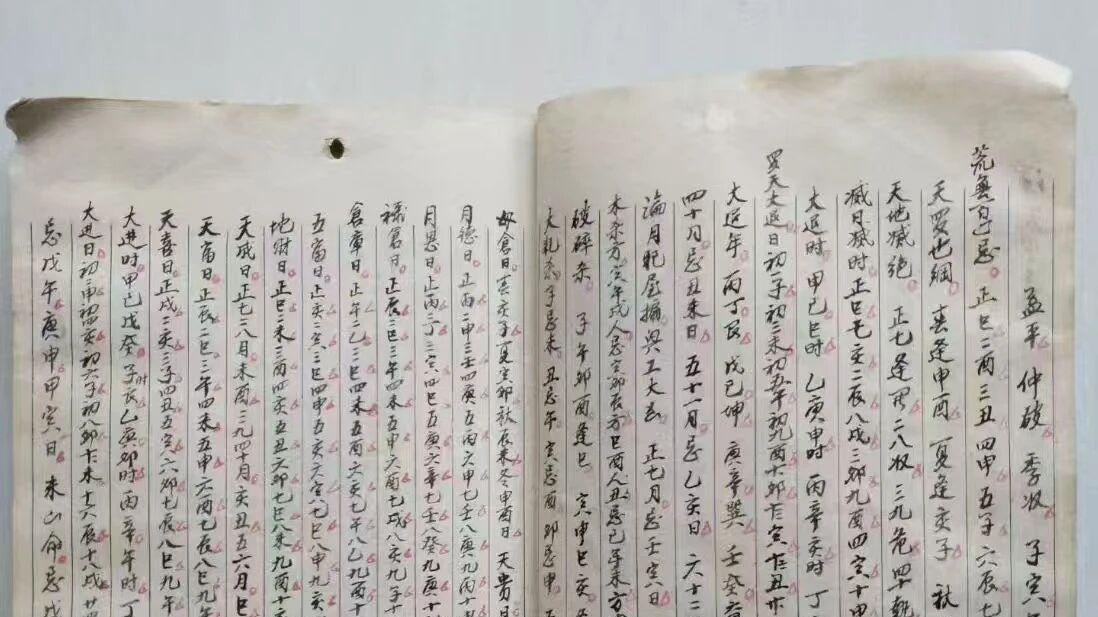 孟平 仲破 季收 子寅
荒蕪日忌 正巳二酉三丑 四甲 五子 六辰 七
天罗也網 春逢申酉 夏逢亥子 秋
天地滅絕 正七逢 二八收 三九危 四十執
滅日滅时 正巳七亥二辰八戌三卯九酉四寅十甲
大退时 甲己巳时 乙庚申时 丙辛亥时 丁
罗天大退日初一子初三未初五午初九酉十
大退年 丙丁艮 戊己坤 庚辛巽 壬癸
四十月忌丑未日 五十一月忌乙亥日 六十二
論月 犯尾 與工大忌 正七月忌壬寅日
未亲方寅午戌人忌寅卯辰方巳酉人丑忌巳午未方
破碎杀 子午卯酉逢巳 寅申巳亥
大 子忌未 丑忌午 寅忌酉 卯忌申
母倉日春亥子夏寅卯秋辰未冬申酉日 天贵日
月德日 正丙二甲三壬四庚五丙六甲七壬八庚九丙十
月恩日 正丙二丁三寅四巳五庚六辛七壬癸九庚十
禄倉日 正辰二巳三午四未五申六酉七戌八亥九
倉庫日 正午二乙三巳四未五酉六亥七午八乙九酉十
五富日 正亥二寅三巳四申五亥六寅七巳八申九亥
地财日 正巳二未三酉四亥五丑六卯七巳八未九酉十
天成日 正七二八月未酉三九四十月亥丑五六月巳
天富日 正辰二巳三午四未五申六酉七辰八巳九
天喜日 正戌二亥三子四丑五寅六卯七辰八巳九午
大进时甲己戊癸子时辰乙庚卯时丙辛年时丁
大进日初一申初四亥初六子初八卯 未十六辰十八戌廿
忌戊午庚申甲寅日 未山 忌戊